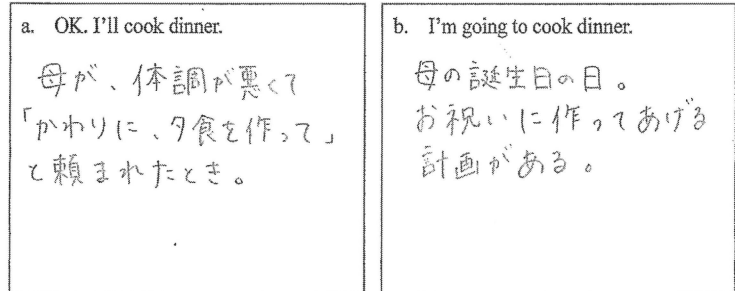 a. OK. I'll cook dinner.
母が、体調が悪くて
「かわりに、夕食を作って」
と頼まれたとき。
b. I'm going to cook dinner.
母の誕生日の日。
お祝いに作ってあげる
計画がある。